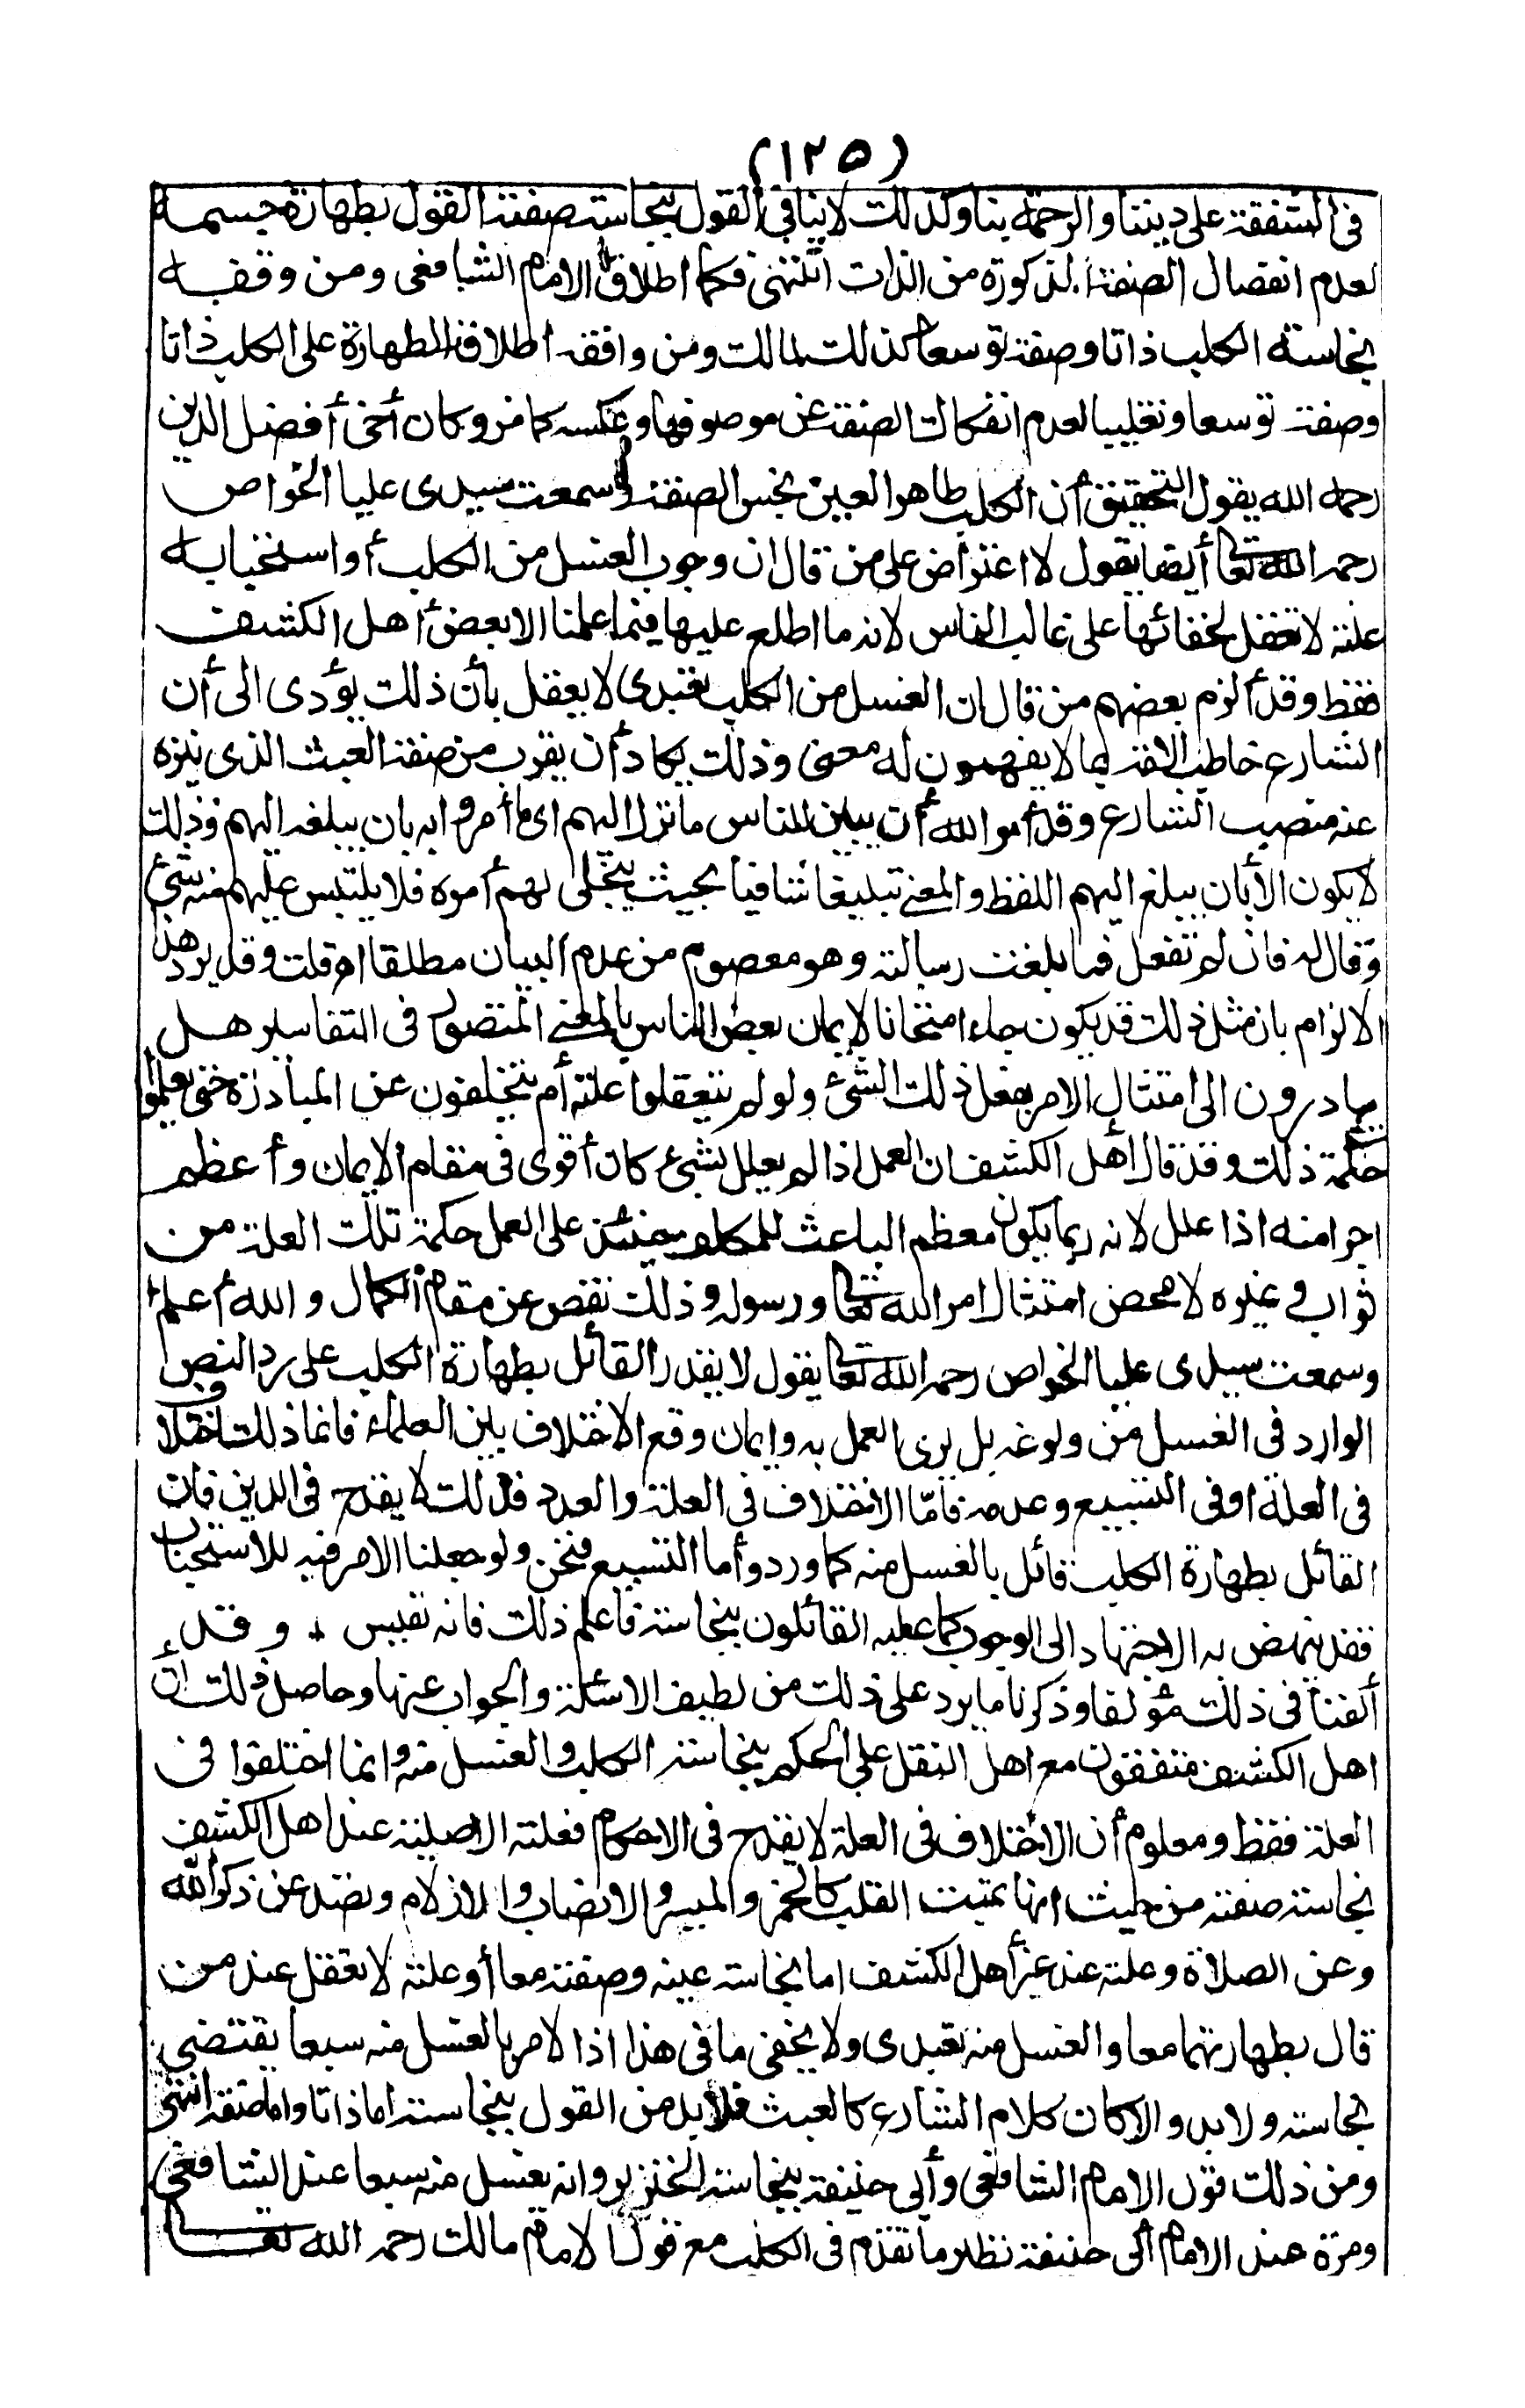 (١٢٥)
فى الشفقة على ديننا والرحمة بنا وكذلك لا ينافى القول بنجاسة صفته القول بطهارة جسمه
لعدم انفصال الصفة المذكورة من الذات انتهى فكما اطلاق الامام الشافعى ومن وقفه
نجاسة الكلب ذاتا وصفة توسعا كذلك لمالك ومن وافقه اطلاق الطهارة على الكلب ذاتا
وصفة توسعا وتغليبا لعدم انفكاك الصفة عن موصوفها وعكسه كما مر وكان أخى أفضل الدين
رحمه الله يقول التحقيق أن الكلب طاهر العين نجس الصفة وسمعت سيدى عليا الخواص
رحمه الله تعالى أيضا يقول لا اعتراض على من قال ان وجوب الغسل من الكلب أو استحبابه
علته لا تعقل لخفائها على غالب الناس لانه ما اطلع عليها فيما علمنا الا بعض أهل الكشف
فقط وقد ألزم بعضهم من قال ان الغسل من الكلب تعبدى لا يعقل بأن ذلك يؤدى الى أن
الشارع خاطب الامة بما لا يفهمون له معنى وذلك يكاد أن يقرب من صفة العبث الذى ينزه
عنه منصب الشارع وقد أمر الله أن يبين للناس ما نزل اليهم اى ما أمروا به بان يبلغه اليهم وذلك
لا يكون الا بأن يبلغ اليهم اللفظ والمعنى تبليغا شافيا بحيث يتجلى لهم أمره فلا يلتبس عليهم منه شئ
وقال له فان لم تفعل فما بلغت رسالته وهو معصوم من عدم البيان مطلقا اه قلت وقد يرد هذا
الالزام بان مثل ذلك قد يكون جاء امتحانا لايمان بعض الناس بالمعنى المنصوص فى التفاسير هل
يبادرون الى امتثال الامر بفعل ذلك الشئ ولو لم يتعقلوا علته أم يتخلفون عن المبادرة حتى يعلموا
حكمة ذلك وقد قال أهل الكشف ان العمل اذا لم يعلل بشئ كان أقوى فى مقام الايمان وأعظم
اجرا منه اذا علل لانه ربما يكون معظم الباعث للمكلف حينئذ على العمل حكمة تلك العلة من
ثواب وغيره لا محض امتثال امر الله تعالى ورسوله وذلك نقص عن مقام الكمال والله أعلم
وسمعت سيدى عليا الخواص رحمه الله تعالى يقول لا يقدر القائل بطهارة الكلب على رد النص
الوارد فى الغسل من ولوغه بل يرى العمل به وان وقع الاختلاف بين العلماء فانما ذلك اختلاف
فى العلة او فى التسبيع وعدمه فأمّا الاختلاف فى العلة والعدد فذلك لا يقدح فى الدين فان
القائل بطهارة الكلب قائل بالغسل منه كما ورد وأما التسبيع فنحن ولو جعلنا الامر فيه للاستحباب
فقد ينهض به الاجتهاد الى الوجوب كما عليه القائلون بنجاسته فاعلم ذلك فانه نفيس ، وقد
ألفنا فى ذلك مؤلفا وذكرنا ما يرد على ذلك من لطيف الاسئلة والجواب عنها وحاصل ذلك ان
اهل الكشف متفقون مع اهل النقل على الحكم بنجاسة الكلب والغسل منه وانما اختلفوا فى
العلة فقط ومعلوم أن الاختلاف فى العلة لا يقدح فى الاحكام فعلته الاصلية عند اهل الكشف
نجاسة صفته من حيث انها تميت القلب كالخمر والميسر والانصاب والازلام وتصد عن ذكر الله
وعن الصلاة وعلته عند غير أهل الكشف اما نجاسة عينه وصفته معا أو علته لا تعقل عند من
قال بطهارتهما معا والغسل منه تعبدى ولا يخفى ما فى هذا اذ الامر بالغسل منه سبعا يقتضى
نجاسته ولا بد والا كان كلام الشارع كالعبث فلا بد من القول بنجاسته اما ذاتا واما صفة انتهى
ومن ذلك قول الامام الشافعى وأبى حنيفة بنجاسة الخنزير وانه يغسل منه سبعا عند الشافعى
ومرة عند الامام أبى حنيفة نظير ما تقدم فى الكلب مع قول الامام مالك رحمه الله تعالى